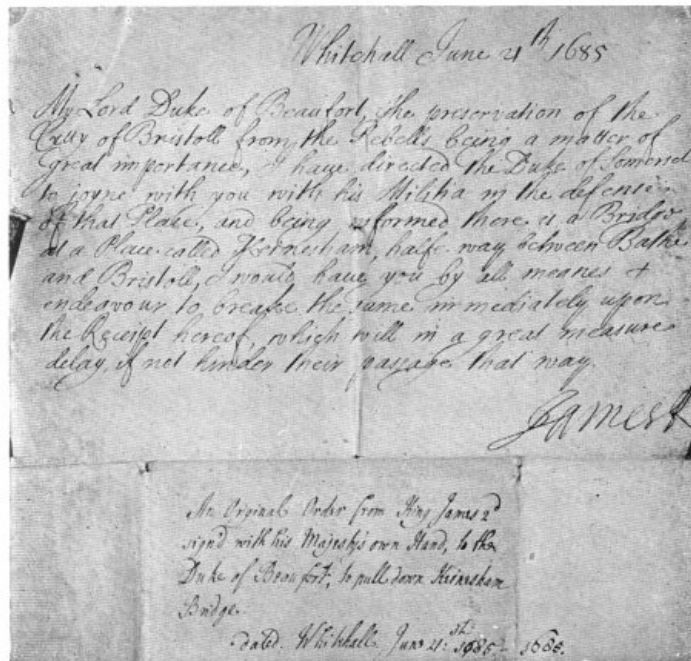 Whitehall June 21th 1685
My Lord Duke of Beaufort, the preservation of the
Citty of Bristoll from the Rebells being a matter of
great importance, I have directed the Duke of Somerset
to joyne with you with his Militia in the defense
of that Place, and being informed there is a Bridge
at a Place called Keinesham, halfe way between Bathe
and Bristoll, I would have you by all meanes
endeavour to breake the same immediately upon
the Receipt hereof, which will in a great measure
delay, if not hinder their passage that way.
James R
An Orginal Order from King James 2d
sign'd with his Majesty's own Hand, to the
Duke of Beaufort, to pull down Keinesham
Bridge.
dated. Whitehall June 21:st 1685 - 1685.